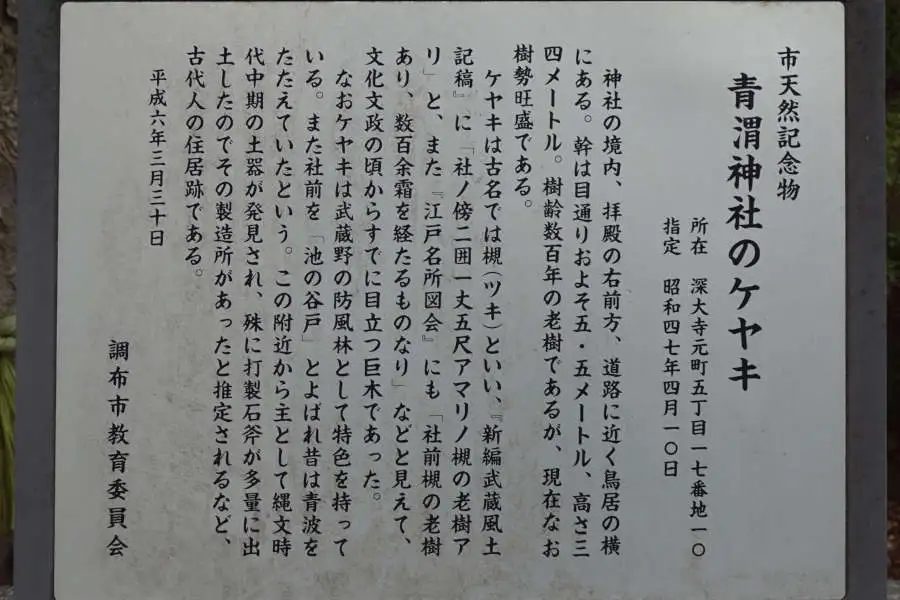 市天然記念物
青渭神社のケヤキ
所在　深大寺元町五丁目一七番地一〇
指定　昭和四七年四月一〇日
神社の境内、拝殿の右前方、道路に近く鳥居の横
にある。幹は目通りおよそ五・五メートル、高さ三
四メートル。樹齢数百年の老樹であるが、現在なお
樹勢旺盛である。
ケヤキは古名では槻（ツキ）といい、『新編武蔵風土
記稿』に「社ノ傍二囲一丈五尺アマリノ槻の老樹ア
リ」と、また『江戸名所図会』にも「社前槻の老樹
あり、数百余霜を経たるものなり」などと見えて、
文化文政の頃からすでに目立つ巨木であった。
なおケヤキは武蔵野の防風林として特色を持って
いる。また社前を「池の谷戸」とよばれ昔は青波を
たたえていたという。この附近から主として縄文時
代中期の土器が発見され、殊に打製石斧が多量に出
土したのでその製造所があったと推定されるなど、
古代人の住居跡である。
平成六年三月三十日
調布市教育委員会